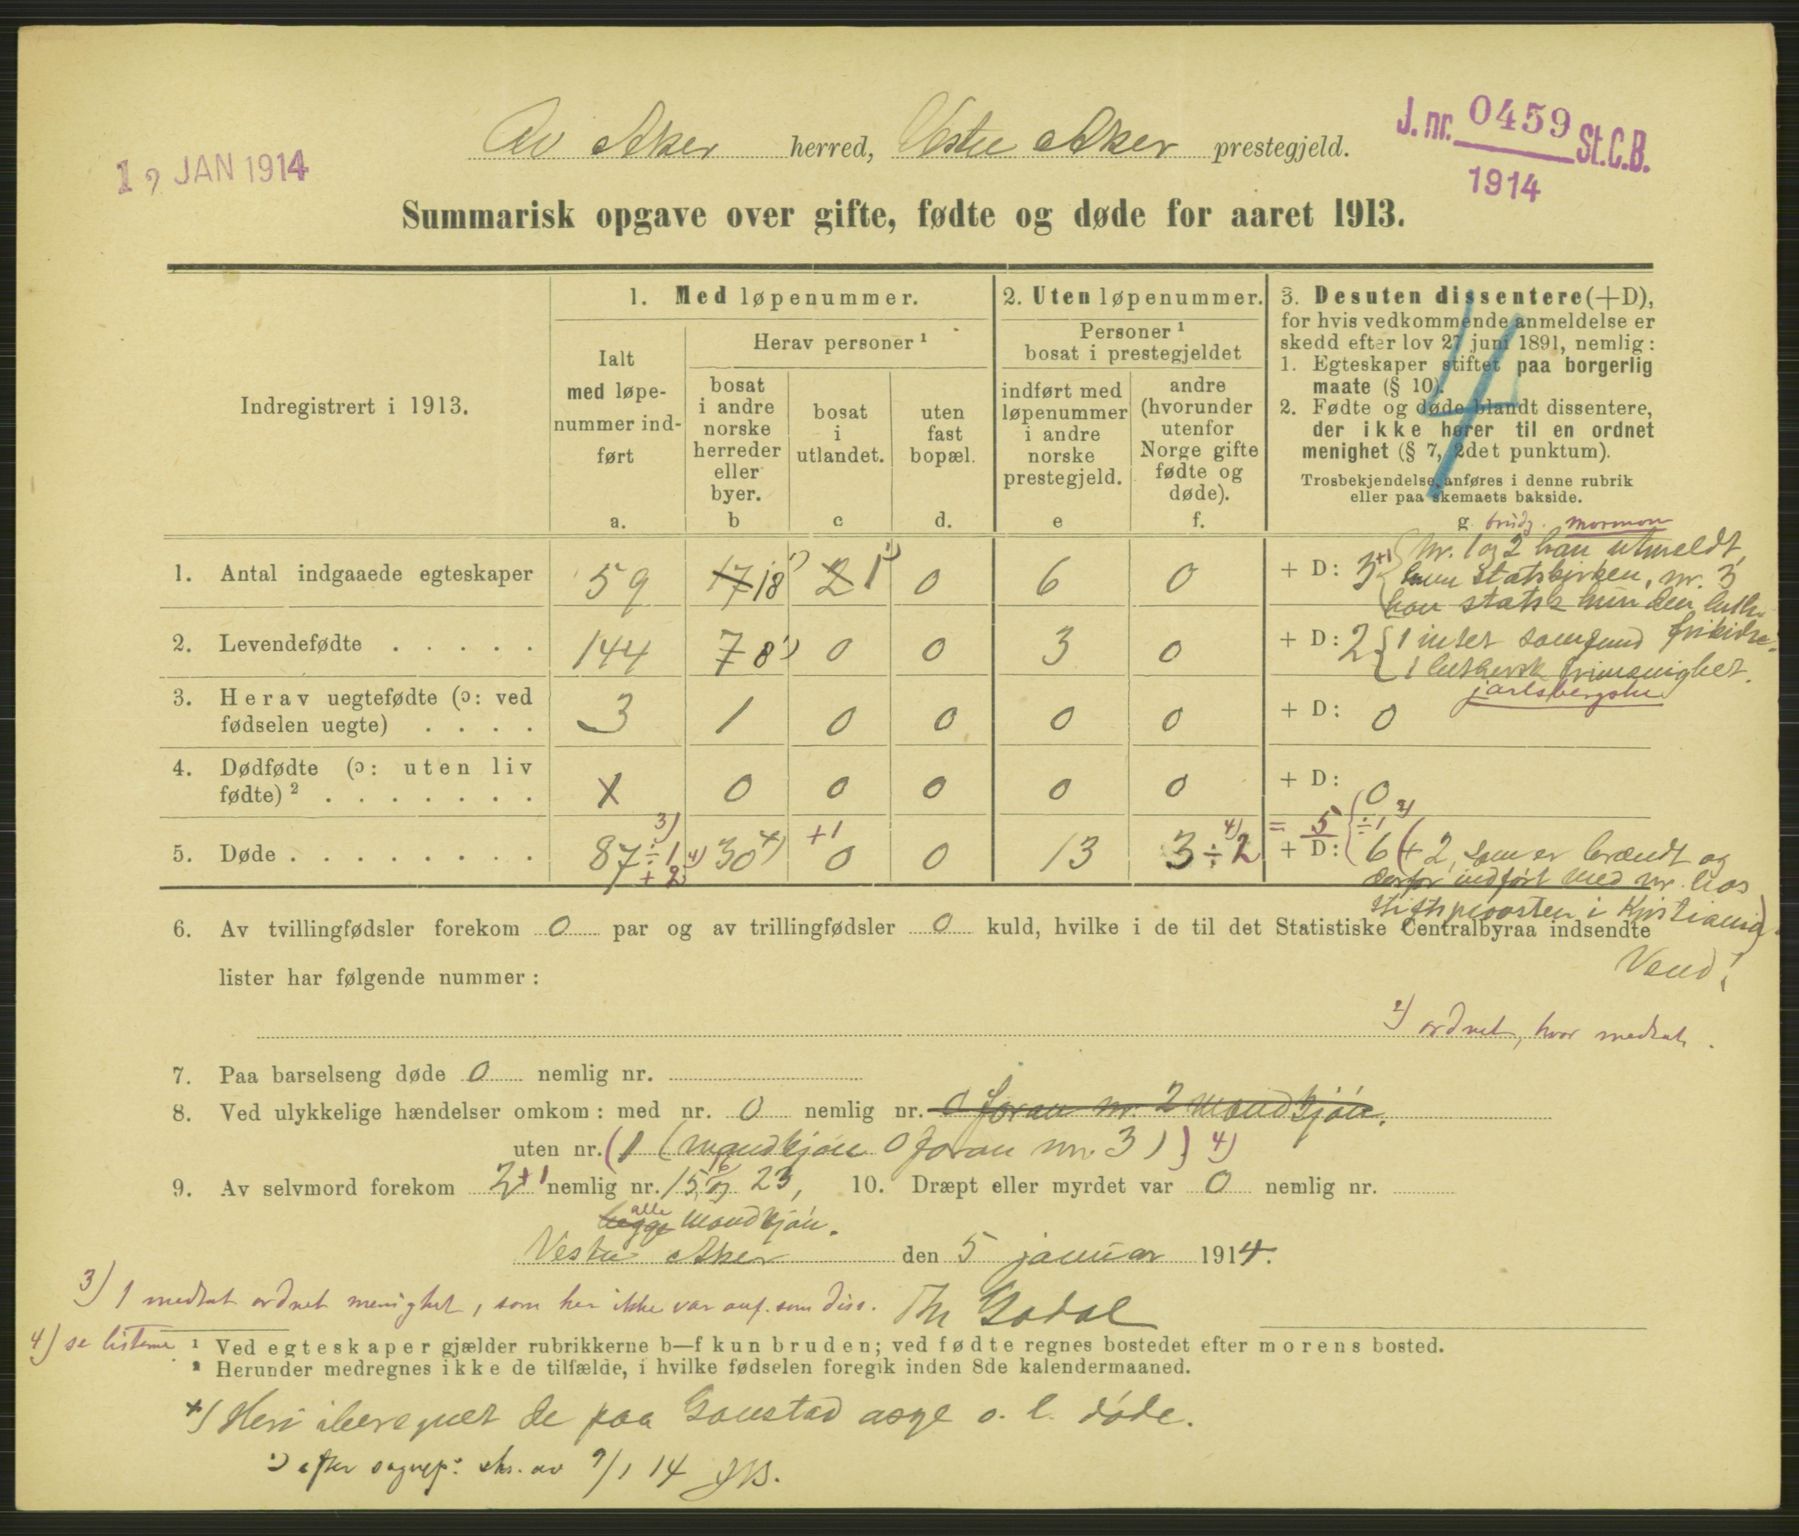 Av Aker herred, Vestre Aker prestegjeld.
J. nr. 0459 St.C.B.
1914
12 JAN 1914
Summarisk opgave over gifte, fødte og døde for aaret 1913.
Indregistrert i 1913.
1. Med løpenummer.
Ialt
med løpe-
nummer ind-
ført
a.
Herav personer ¹
bosat
i andre
norske
herreder
eller
byer.
b
bosat
i
utlandet.
c
uten
fast
bopæl.
d.
2. Uten løpenummer.
Personer ¹
bosat i prestegjeldet
indført med
løpenummer
i andre
norske
prestegjeld.
e
andre
(hvorunder
utenfor
Norge gifte
fødte og
døde).
f.
3. Desuten dissentere (+D),
for hvis vedkommende anmeldelse er
skedd efter lov 27 juni 1891, nemlig:
1. Egteskaper stiftet paa borgerlig
maate (§ 10).
2. Fødte og døde blandt dissentere,
der ikke hører til en ordnet
menighet (§ 7, 2det punktum).
Trosbekjendelse anføres i denne rubrik
eller paa skemaets bakside.
g. brudg. mormon
4
1. Antal indgaaede egteskaper 59 17 18 ¹) 2 1 ¹) 0 6 0 + D: 3 +1 Nr. 1 og 2 han utmeldt,
hun Statskirken, nr. 3
han statsk hun den luth.
frikirke.
2. Levendefødte . . . . . 144 7 8 ¹) 0 0 3 0 + D: 2 { 1 intet samfund
1 luthersk frimenighet.
jarlsbergske
3. Herav uegtefødte (ɔ: ved
fødselen uegte) . . . . 3 1 0 0 0 0 + D: 0
4. Dødfødte (ɔ: uten liv
fødte) ² . . . . . . . X 0 0 0 0 0 + D: 0
5. Døde . . . . . . . . . 87 ÷1 ³) +2 ⁴) 30 ˣ) +1 0 0 13 3 ÷2 ⁴) = 5 + D: { ÷1 ²) 6 (+ 2, som er brændt og
derfor indført med nr. hos
stiftsprovsten i Kristiania)
6. Av tvillingfødsler forekom 0 par og av trillingfødsler 0 kuld, hvilke i de til det Statistiske Centralbyraa indsendte
lister har følgende nummer:
Vend!
²) ordnet, hvor medtat.
7. Paa barselseng døde 0 nemlig nr.
8. Ved ulykkelige hændelser omkom: med nr. 0 nemlig nr. 0 foran nr. 2 mandkjøn.
uten nr. (1 (mandkjøn 0 foran nr. 31) ) 4)
9. Av selvmord forekom 2 +1 nemlig nr. 15, 16 og 23, 10. Dræpt eller myrdet var 0 nemlig nr.
begge alle mandkjøn.
Vestre Aker den 5 januar 1914.
3) 1 medtat ordnet menighet, som her ikke var anf. som diss. Th Godal
4) se listerne.
¹ Ved egteskaper gjælder rubrikkerne b—f kun bruden; ved fødte regnes bostedet efter morens bosted.
² Herunder medregnes ikke de tilfælde, i hvilke fødselen foregik inden 8de kalendermaaned.
x) Heri iberegnet de paa Gaustad asyl o. l. døde.
¹) efter sognepr. skr. av 9/1 14